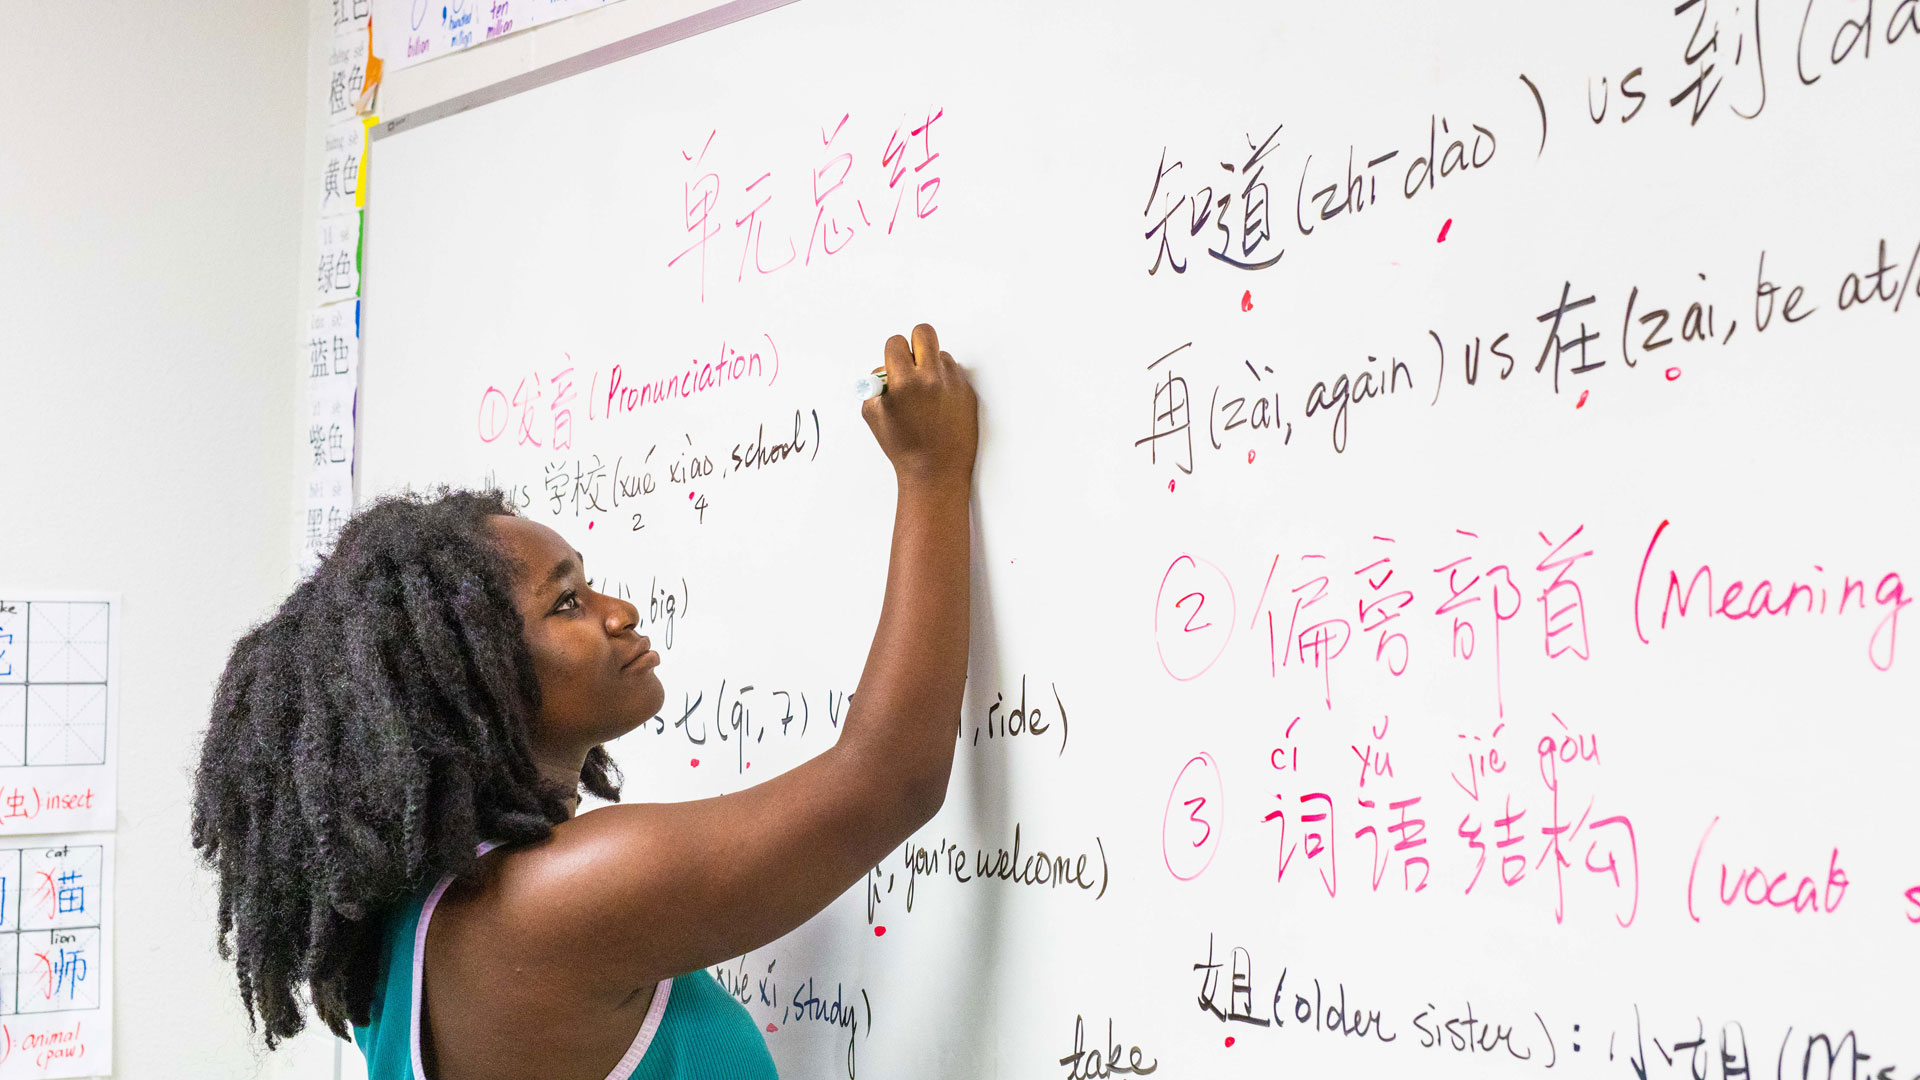 billion
hundred million
ten million
红色
chéng sè
橙色
huáng sè
黄色
lǜ sè
绿色
蓝色
紫色
黑色
单元总结
①发音(Pronunciation)
vs 学校(xué xiào, school)
2 4
, big)
七(qī, 7) vs
, ride)
, you're welcome)
xué xí, study)
take
知道(zhī dào) vs 到(
再(zài, again) vs 在(zài, be at/
② 偏旁部首(Meaning
cí yǔ jié gòu
③ 词语结构(vocab
姐(older sister): 小姐(
(虫): insect
cat
猫
lion
狮
): animal
(paw)